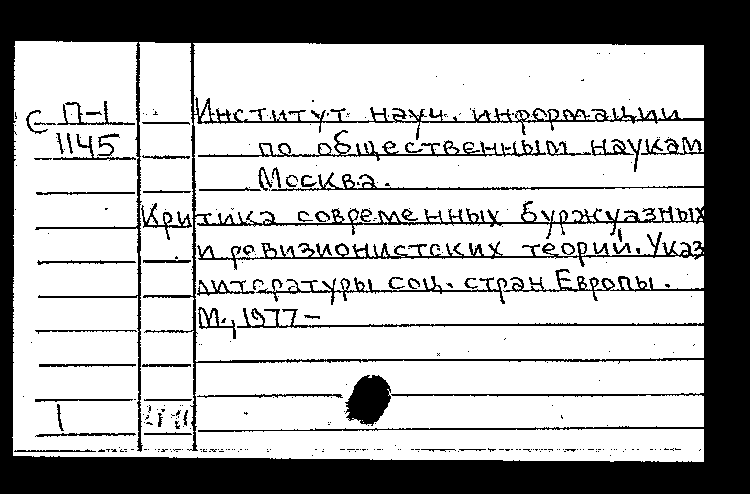 С П-1
1145
Институт науч. информации
по общественным наукам
Москва.
Критика современных буржуазных
и ревизионистских теорий. Указ
литературы соц. стран Европы.
М., 1977-
1